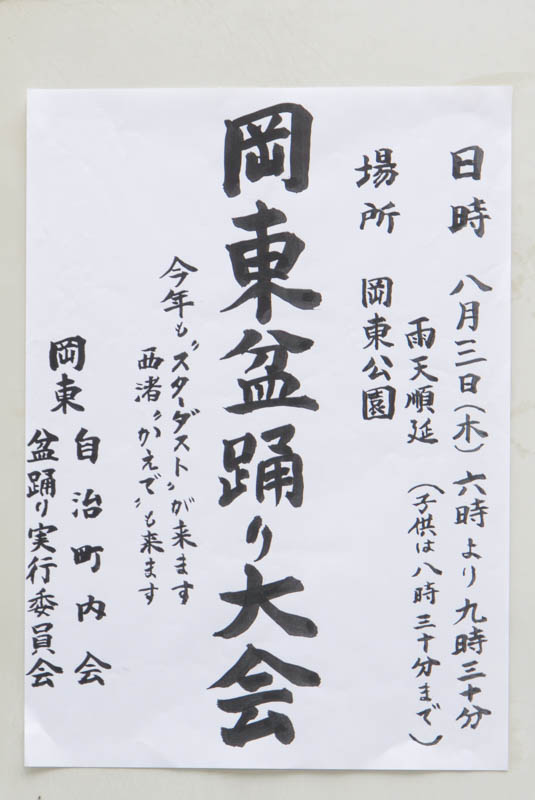 日時 八月三日(木)六時より九時三十分
雨天順延 (子供は八時三十分まで)
場所 岡東公園
岡東盆踊り大会
今年も"スターダスト"が来ます
西渚"かえで"も来ます
岡東 自治町内会
盆踊り実行委員会